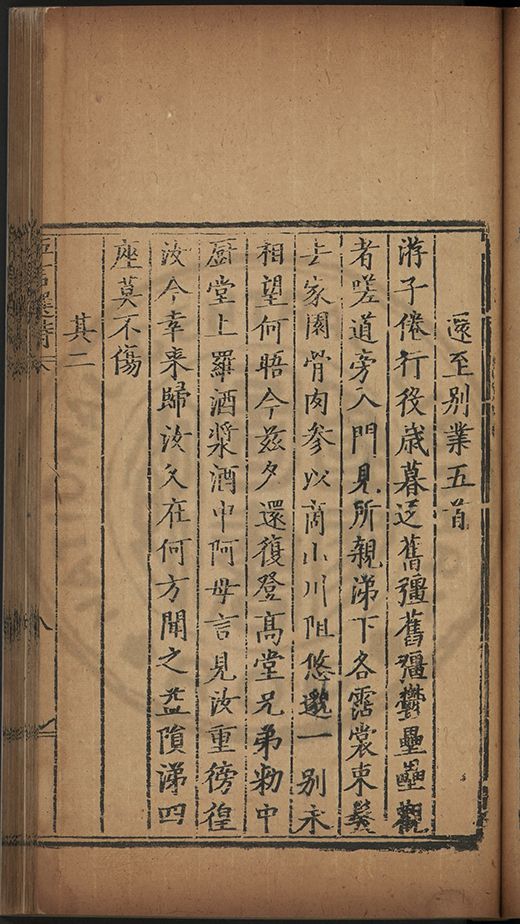 還至別業五首
游子倦行役歲暮返舊疆舊疆鬱壘壘觀
者嗟道旁入門見所親涕下各霑裳束髮
去家園骨肉參以商山川阻悠邈一別永
相望何晤今茲夕還復登高堂兄弟勑中
厨堂上羅酒漿酒中阿母言見汝重徬徨
汝今幸来歸汝父在何方聞之益隕涕四
座莫不傷
其二